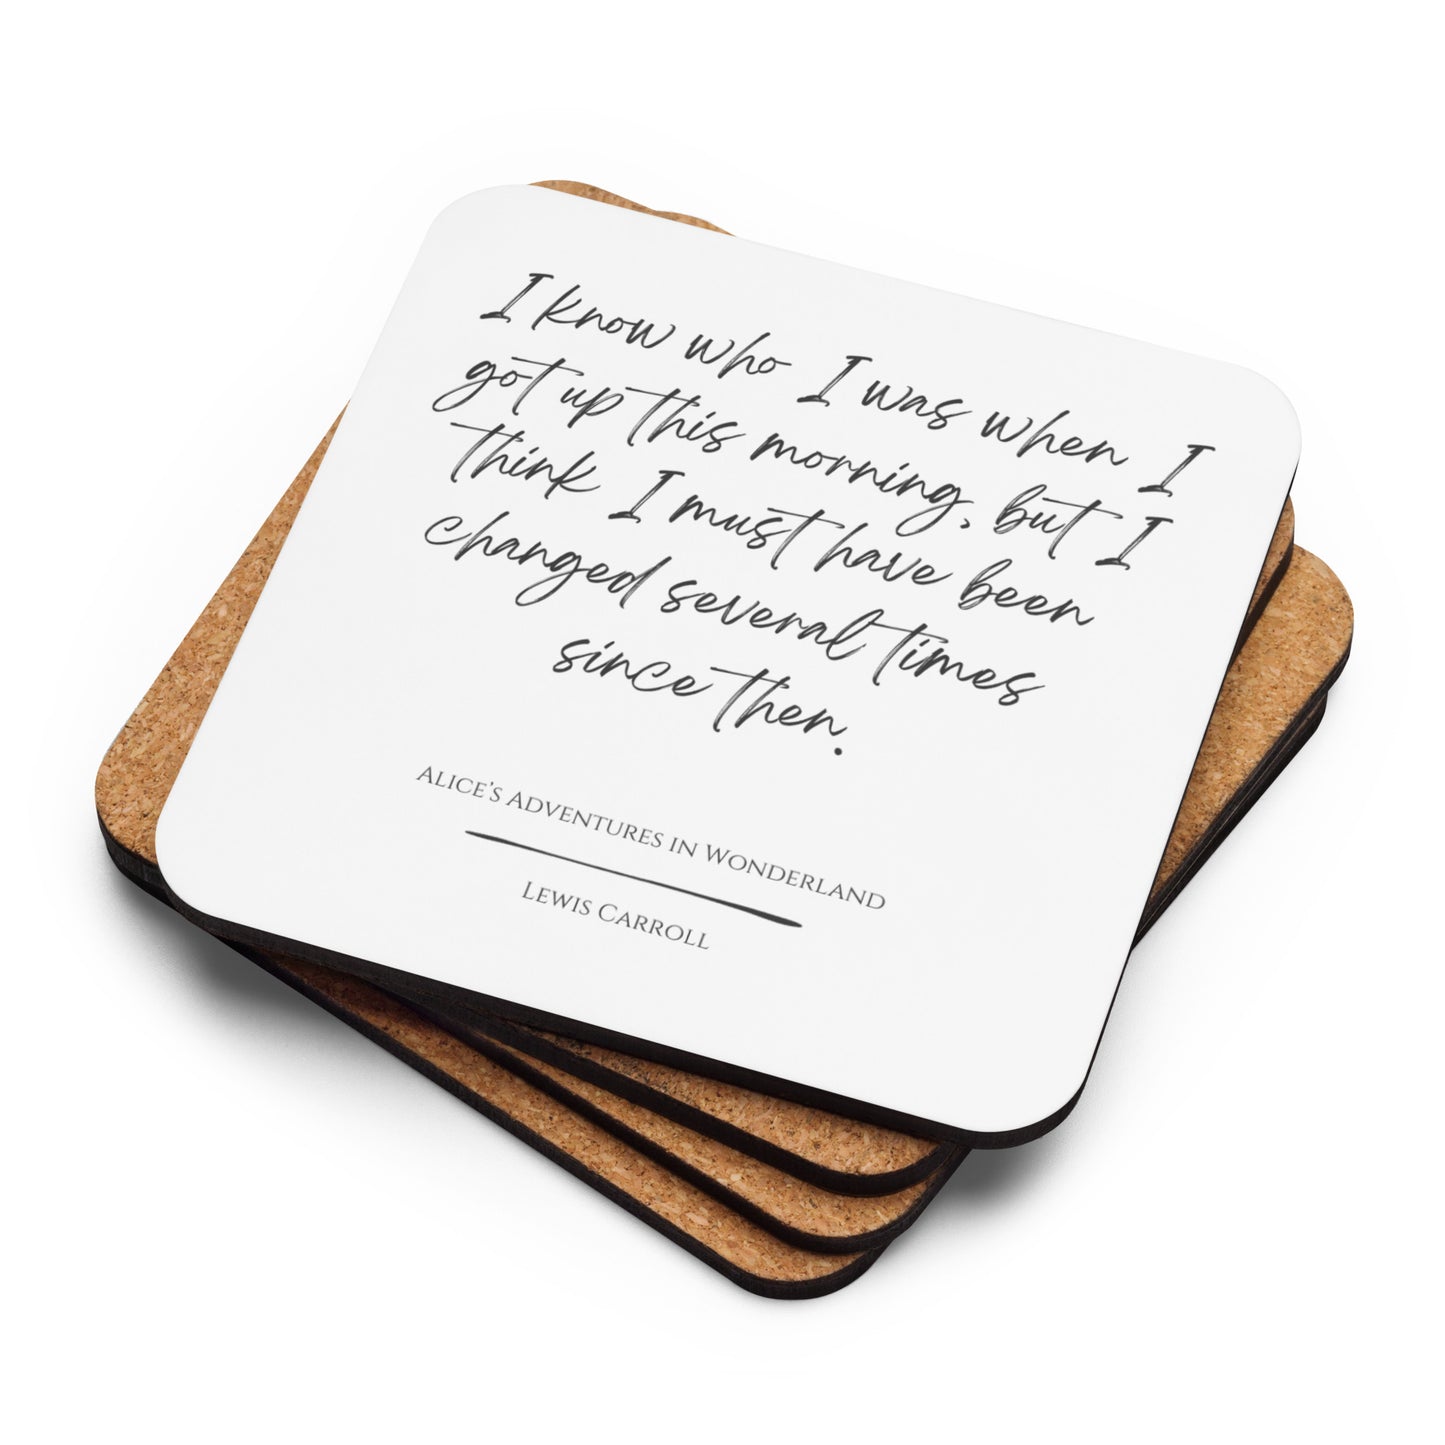 I know who I was when I
got up this morning, but I
think I must have been
changed several times
since then.
Alice's Adventures in Wonderland
Lewis Carroll